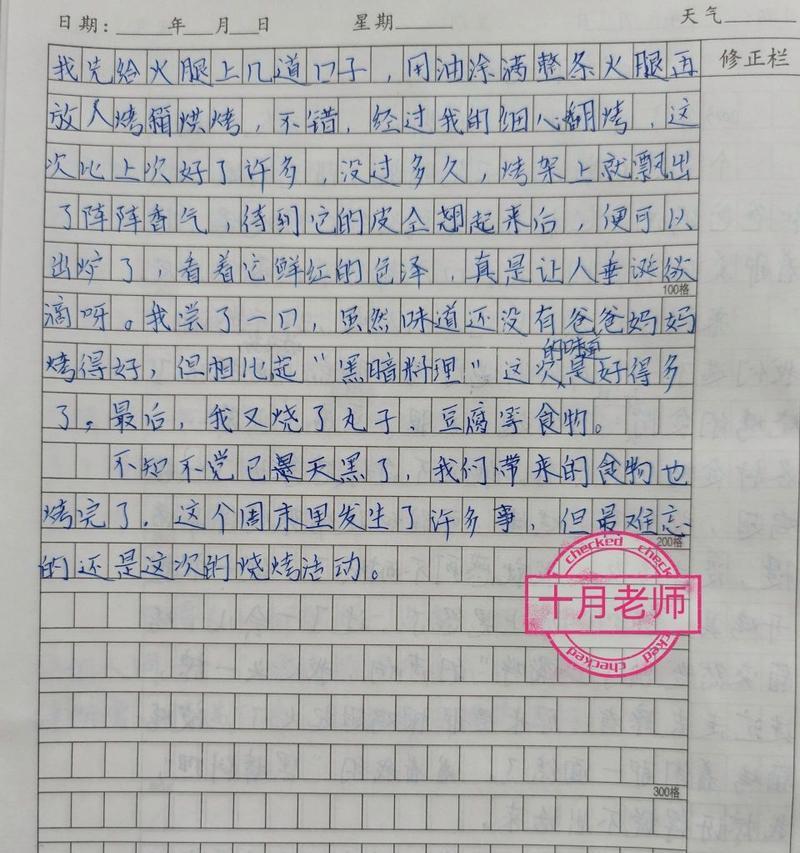 日期：____年__月__日 星期____ 天气____
修正栏
我先给火腿上几道口子，用油涂满整条火腿再
放入烤箱烘烤，不错，经过我的细心翻烤，这
次比上次好了许多，没过多久，烤架上就飘出
了阵阵香气，待到它的皮全翘起来后，便可以
出炉了，看着它鲜红的色泽，真是让人垂涎欲
100格
滴呀。我尝了一口，虽然味道还没有爸爸妈妈
烤得好，但相比起“黑暗料理”这次的味道是好得多
了。最后，我又烧了丸子、豆腐等食物。
不知不觉已是天黑了，我们带来的食物也
烤完了．这个周末里发生了许多事，但最难忘
200格
的还是这次的烧烤活动。
checked check
十月老师
checked
300格